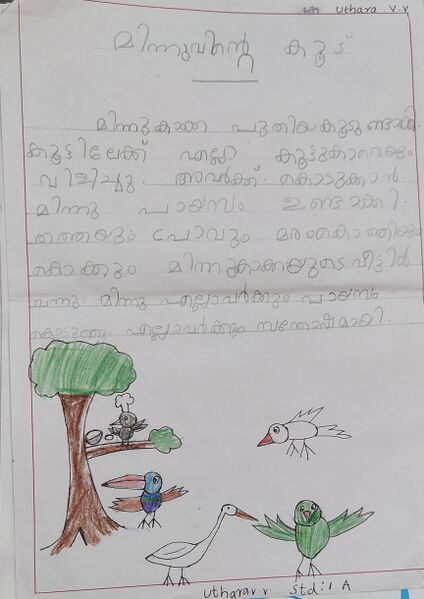 Uthara. V. V
മിന്നുവിന്റെ കൂട്
മിന്നുകാക്ക പുതിയകൂടുണ്ടാക്കി.
കൂട്ടിലേക്ക് എല്ലാ കൂട്ടുകാരെയും
വിളിച്ചു. അവർക്ക് കൊടുക്കാൻ
മിന്നു പായസം ഉണ്ടാക്കി.
തത്തയും പ്രാവും മരംകൊത്തിയും
കൊക്കും മിന്നുകാക്കയുടെ വീട്ടിൽ
വന്നു. മിന്നു എല്ലാവർക്കും പായസം
കൊടുത്തു. എല്ലാവർക്കും സന്തോഷമായി.
Uthara v v. Std: 1 A